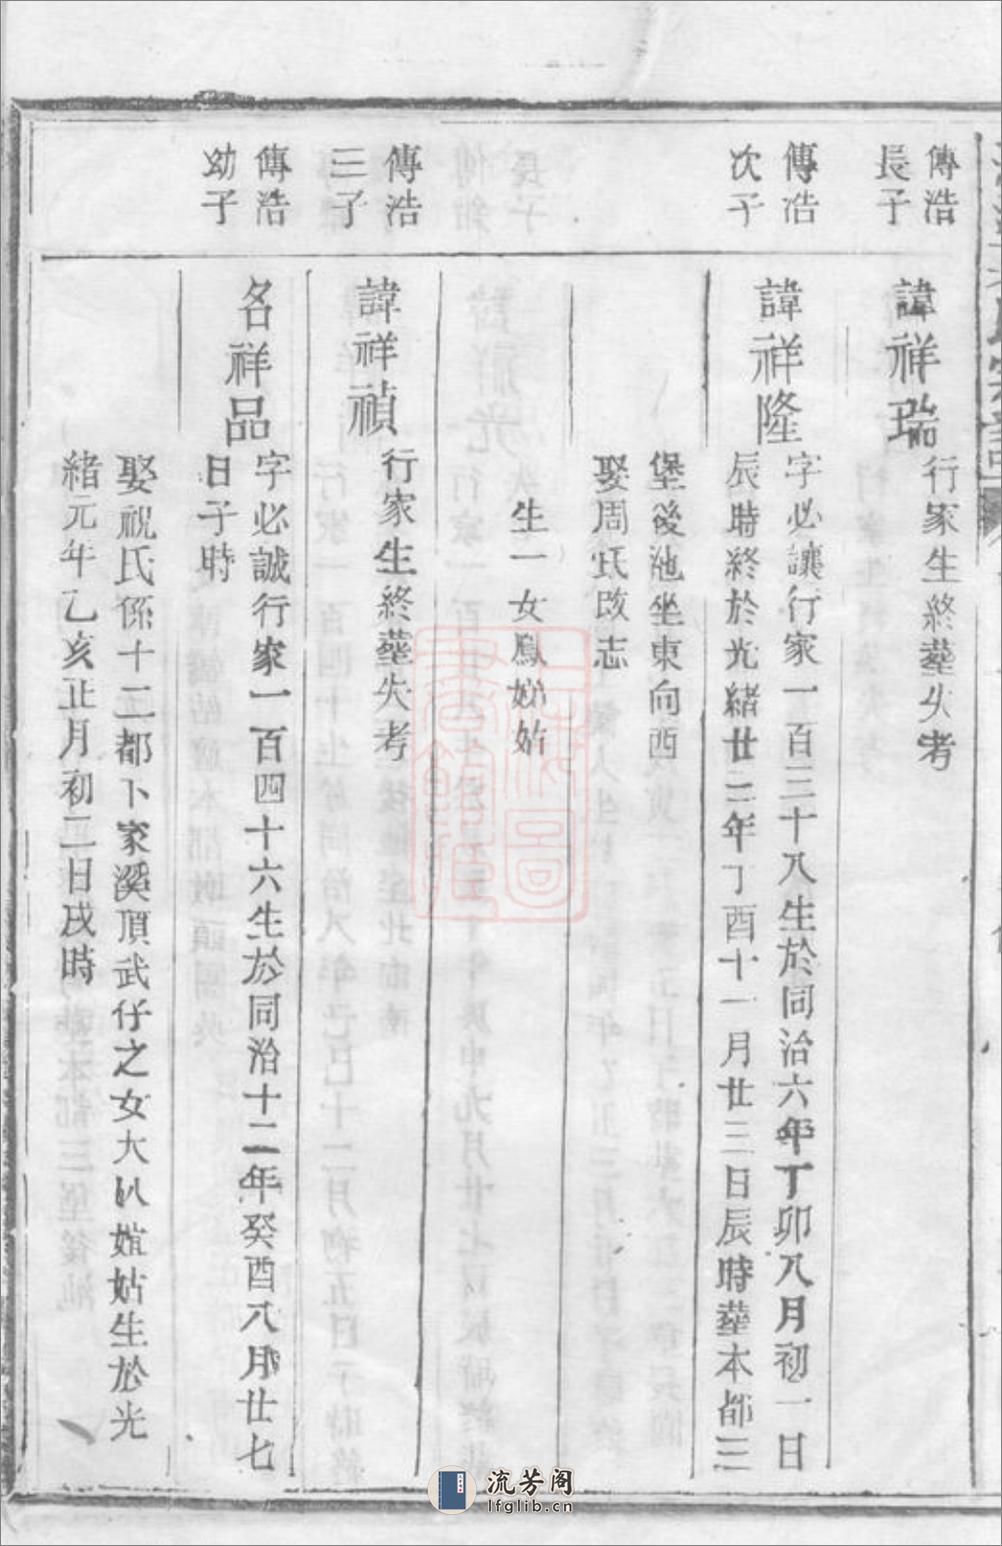 傳浩
長子
諱祥瑞
行家生終塟失考
傳浩
次子
諱祥隆
字必讓行家一百三十八生於同治六年丁卯八月初一日
辰時終於光緒廿三年丁酉十一月廿三日辰時塟本都三
堡後池坐東向西
娶周氏改志
生一女鳳娣姑
傳浩
三子
諱祥禎
行家生終塟失考
傳浩
幼子
名祥品
字必誠行家一百四十六生於同治十二年癸酉八月廿七
日子時
娶祝氏係十二都卜家溪頂武仔之女大㕥媗姑生於光
緒元年乙亥正月初二日戌時
上海圖書館藏
流芳阁
lfglib.cn